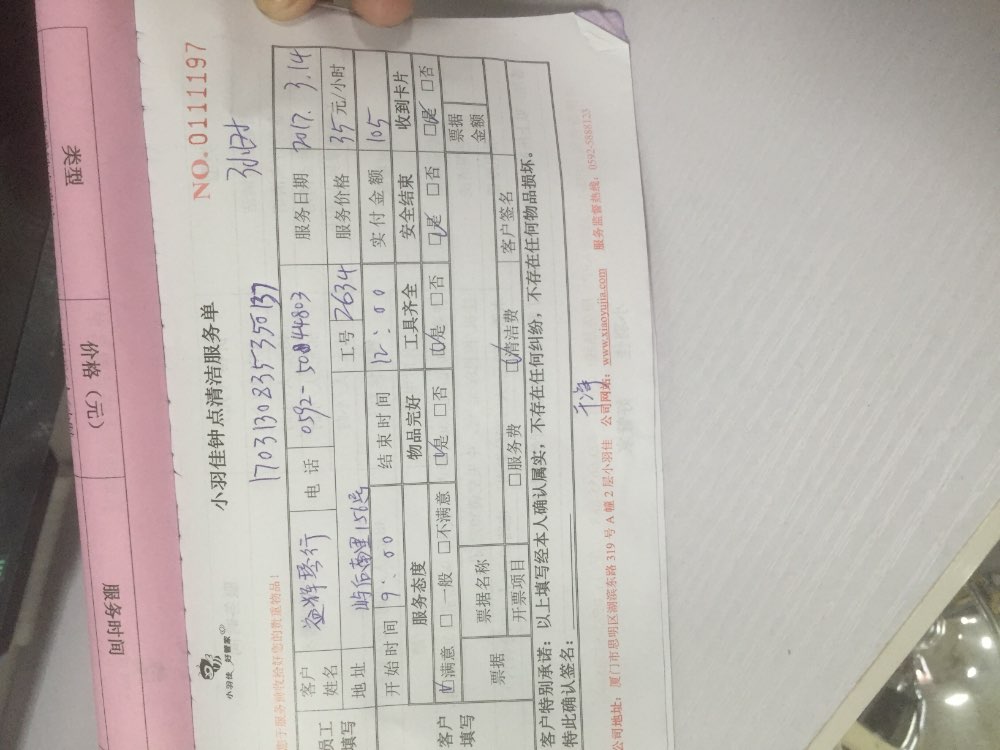 类型
价格（元）
服务时间
NO.0111197
3小时
小羽佳钟点清洁服务单
小羽佳 好管家
17031308353550137
您于服务前收拾好您的贵重物品！
员工填写
客户姓名 益辉琴行 电话 0592-50844803 服务日期 2017. 3.14
地址 屿后南里156号 工号 2634 服务价格 35元/小时
开始时间 9：00 结束时间 12：00 实付金额 105
客户填写
服务态度 物品完好 工具齐全 安全结束 收到卡片
☑满意 □一般 □不满意 ☑是 □否 ☑是 □否 ☑是 □否 ☑是 □否
票据 票据名称 票据金额
开票项目 □服务费 ☑清洁费 客户签名
客户特别承诺：以上填写经本人确认属实，不存在任何纠纷，不存在任何物品损坏。
特此确认签名：
干净
公司地址：厦门市思明区湖滨东路319号A幢2层小羽佳 公司网站：www.xiaoyujia.com 服务监督热线：0592-5888123